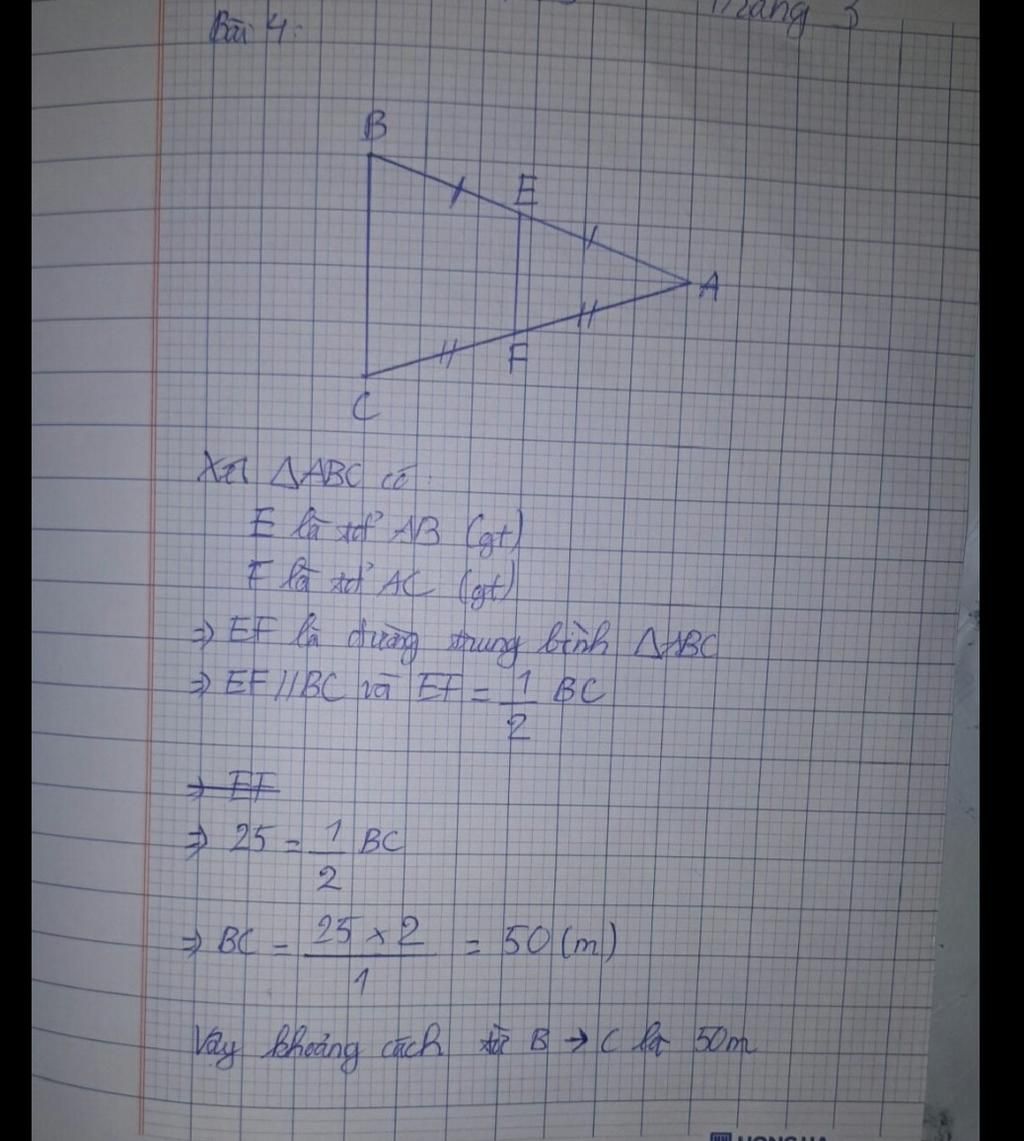 Trang 3
Bài 4:
B
E
A
F
C
Xét △ABC có:
E là tđ AB (gt)
F là tđ AC (gt)
⇒ EF là đường trung bình △ABC
⇒ EF // BC và EF = 1/2 BC
⇒ EF
⇒ 25 = 1/2 BC
⇒ BC = 25 x 2 / 1 = 50 (m)
Vậy khoảng cách từ B → C là 50m
HONG HA